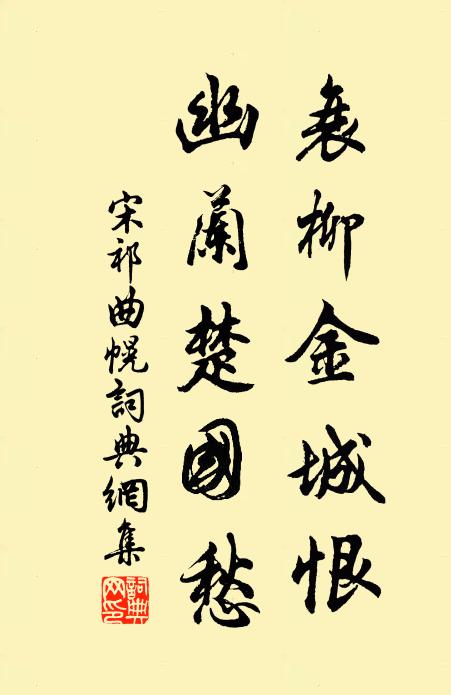 衰柳金城恨
幽蘭楚國愁
宋祁曲幌詞典網集
詞典網印